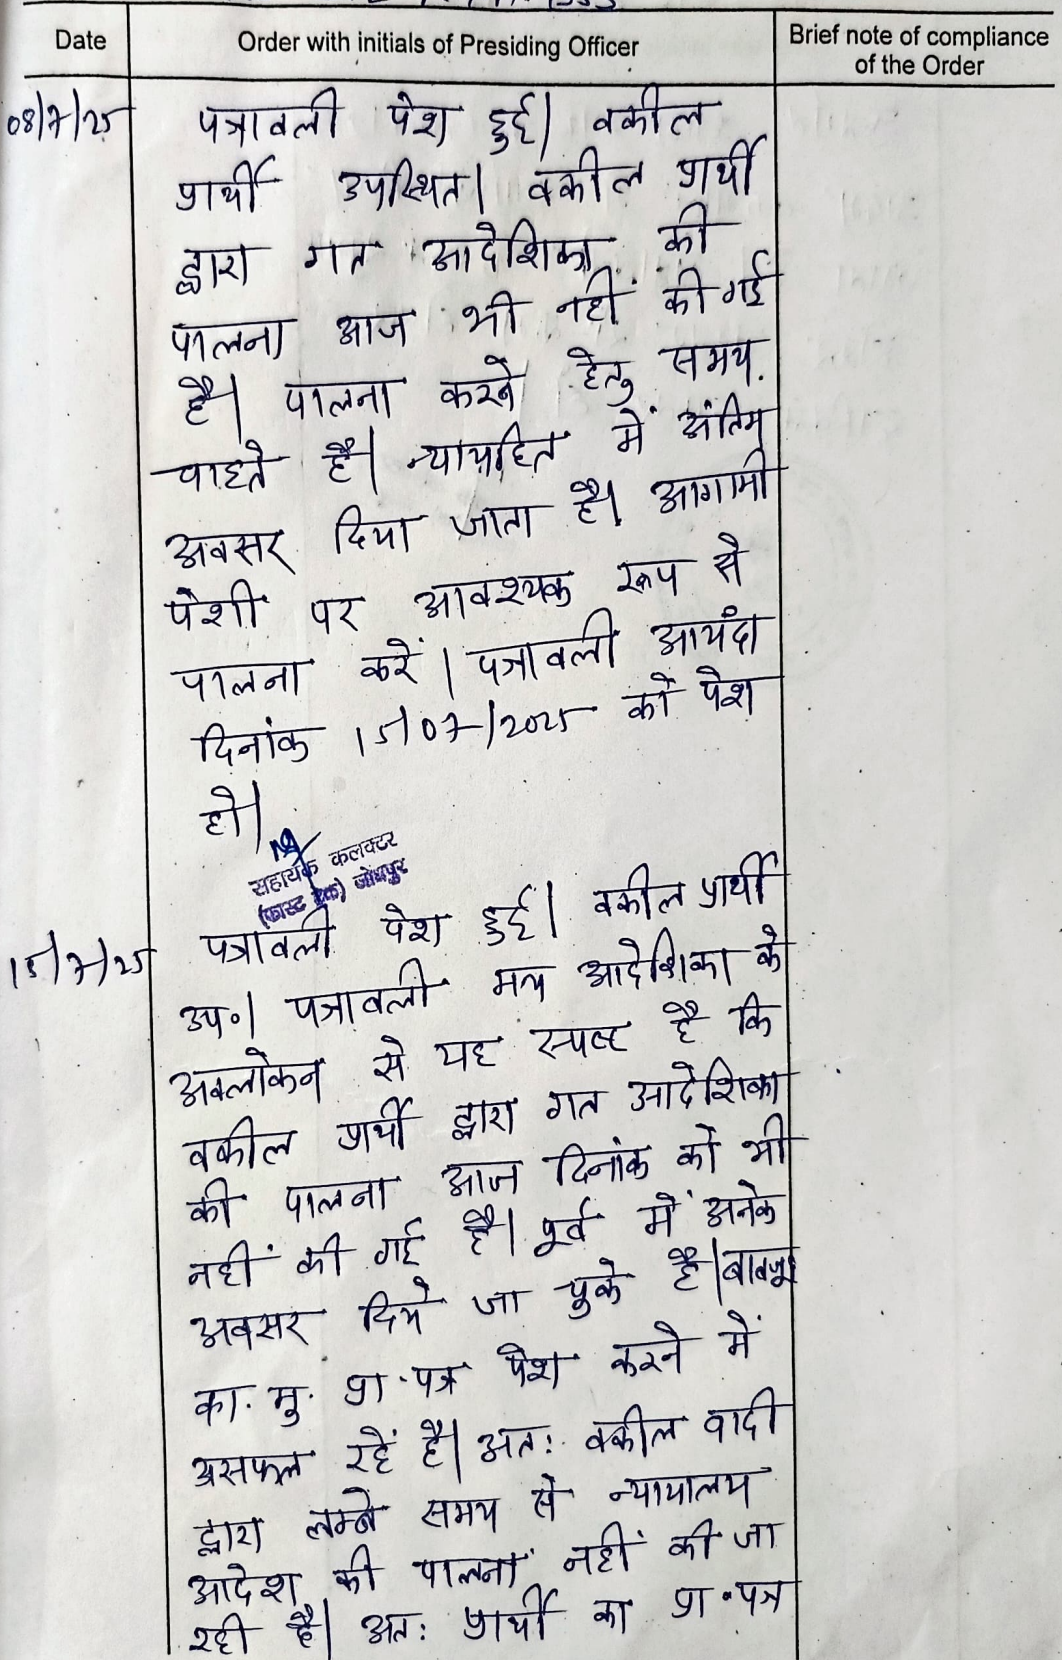 Date
Order with initials of Presiding Officer
Brief note of compliance
of the Order
08/7/25
पत्रावली पेश हुई। वकील
प्रार्थी उपस्थित। वकील प्रार्थी
द्वारा गत आदेशिका की
पालना आज भी नहीं की गई
है। पालना करने हेतु समय
चाहते है। न्यायहित में अंतिम
अवसर दिया जाता है। आगामी
पेशी पर आवश्यक रूप से
पालना करें। पत्रावली आयंदा
दिनांक 15/07/2025 को पेश
हो।
सहायक कलक्टर
(फास्ट ट्रेक) जोधपुर
15/7/25
पत्रावली पेश हुई। वकील प्रार्थी
उप०। पत्रावली मय आदेशिका के
अवलोकन से यह स्पष्ट है कि
वकील प्रार्थी द्वारा गत आदेशिका
की पालना आज दिनांक को भी
नहीं की गई है। पूर्व में अनेक
अवसर दिये जा चुके है।
का. मु. प्रा. पत्र पेश करने में
असफल रहें है। अत: वकील वादी
द्वारा लम्बे समय से न्यायालय
आदेश की पालना नहीं की जा
रही है। अत: प्रार्थी का प्रा. पत्र